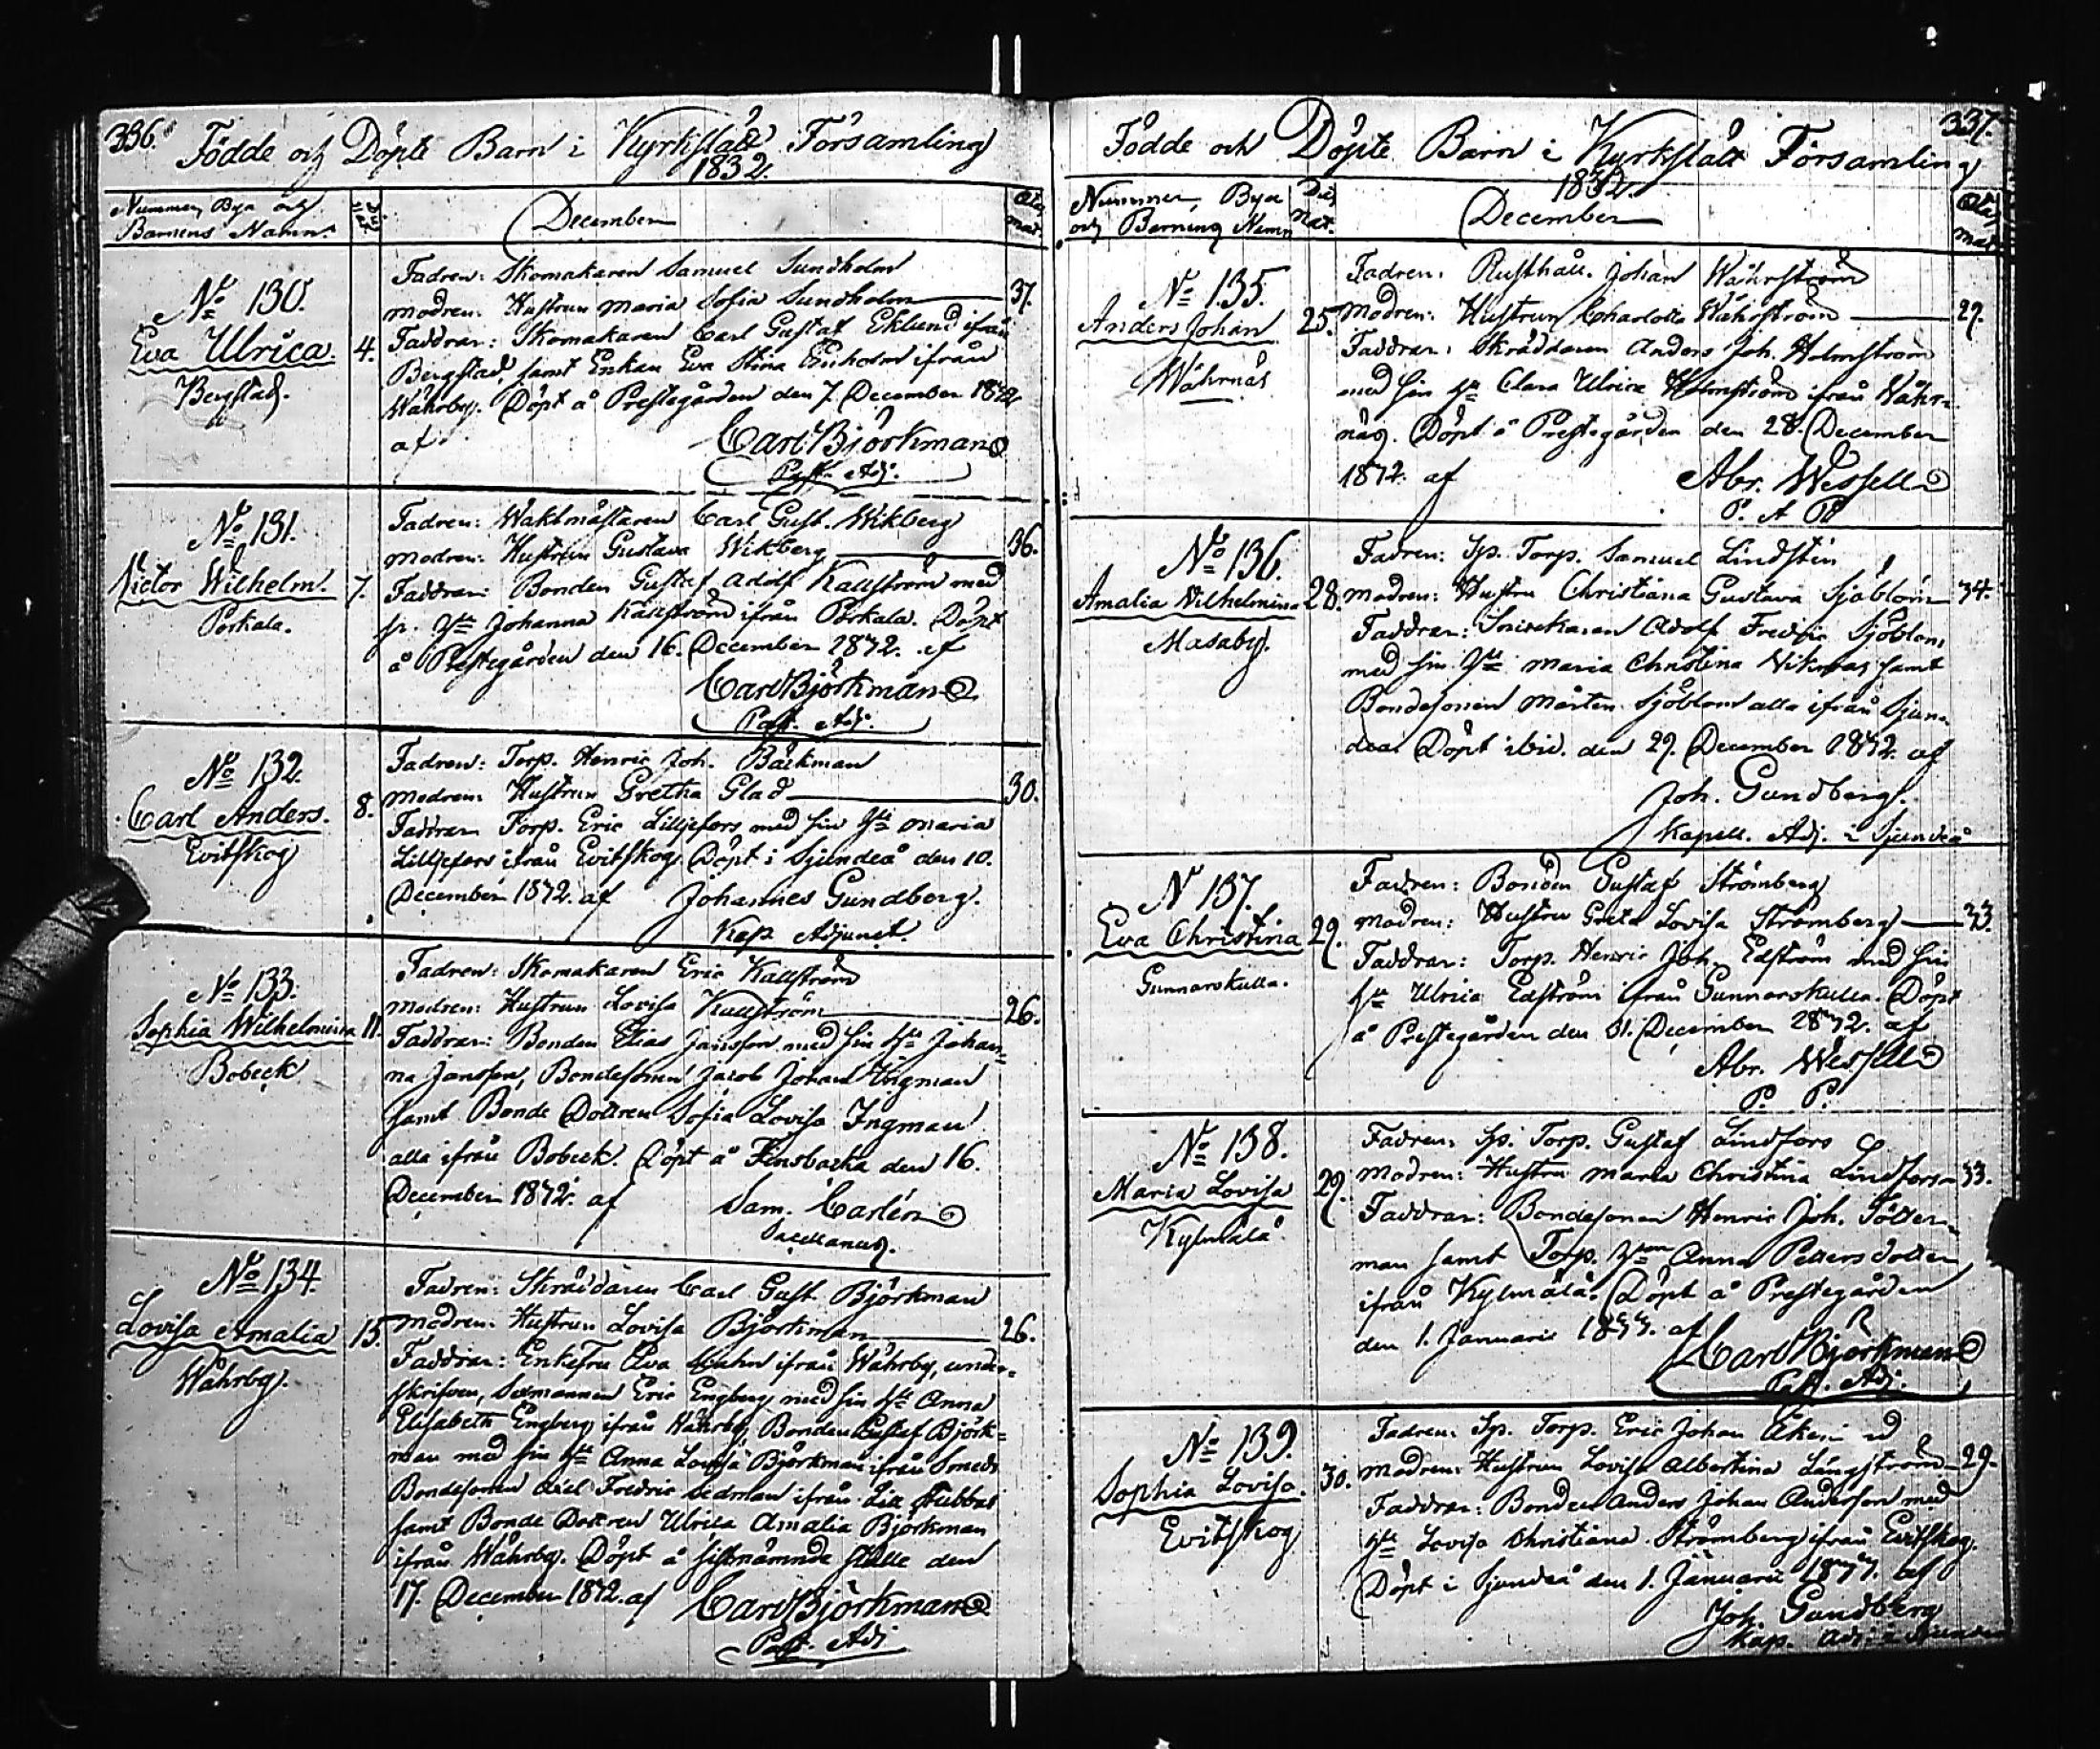 336.
Födde och Döpte Barn i Kyrkslätt Församling
1832.
Nummer, Bya och
Barnens Namn.
December
No 130.
Eva Ulrica.
Bergstad.
4.
Fadren: Skomakaren Samuel Sundholm
Modren: Hustrun Maria Sofia Sundholm 37.
Faddrar: Skomakaren Carl Gustaf Eklund ifrån
Bergstad, samt Enkan Eva Stina ifrån
Wåhrby. Döpt å Prestegården den 7. December 1832
af
Carl Björkman
Past. Adj.
No 131.
Victor Wilhelm.
Porkala.
7.
Fadren: Waktmästaren Carl Gust. Wikberg
Modren: Hustrun Gustava Wikberg 36.
Faddrar: Bonden Gustaf Adolf Kallström med
s. Hu Johanna Källström ifrån Porkala. Döpt
å Prestegården den 16. December 1832. af
Carl Björkman
Past. Adj.
No 132.
Carl Anders.
Evitskog
8.
Fadren: Torp. Henric Joh. Bäckman
Modren: Hustrun Gretha Glad 30.
Faddrar Torp. Eric Lilljefors med sin Hu Maria
Lilljefors ifrån Evitskog. Döpt i Sjundeå den 10.
December 1832. af Johannes Gundberg.
Kap. Adjunct.
No 133.
Sophia Wilhelmina
Bobeck
11.
Fadren: Skomakaren Eric Kallström
Modren: Hustrun Lovisa Kallström 26.
Faddrar: Bonden Elias Jansson med sin Hu Johan=
na Jansson, Bondesonen Jacob Johan Ingman
samt Bonde Dottren Sofia Lovisa Ingman
alla ifrån Bobeck. Döpt å Finsbacka den 16.
December 1832. af Sam. Carlén
Sacellanus.
No 134.
Lovisa Amalia
Wåhrby.
15.
Fadren: Skräddaren Carl Gust. Björkman
Modren: Hustrun Lovisa Björkman 26.
Faddrar: Enkefru Eva ifrån Wåhrby, under=
skrifven, Sexmannen Eric Engberg med sin Hu Anna
Elisabeth Engberg ifrån Wåhrby, Bonden Gustaf Björk=
man med sin Hu Anna Lovisa Björkman ifrån Smeds
Bondesonen Axel Fredric Sedman ifrån Lill Kubbal
samt Bonde Dottren Ulrica Amalia Björkman
ifrån Wåhrby. Döpt å sistnämnde ställe den
17. December 1832. af Carl Björkman
Past. Adj
337.
Födde och Döpte Barn i Kyrkslätt Församling
1832.
Nummer, Bya
och Barnens Namn
Die
Nat.
December
No 135.
Anders Johan
Wåhrnäs
25.
Fadren: Rusthåll. Johan Wåhrström
Modren: Hustrun Charlotta Wåhrström 27.
Faddrar: Skräddaren Anders Joh. Holmström
med sin Hu Clara Ulrica Holmström ifrån Wåhr=
näs. Döpt å Prestegården den 28. December
1832. af Abr. Wessell
P. A P
No 136.
Amalia Wilhelmina
Masaby.
28.
Fadren: Sp. Torp. Samuel Lindstén
Modren: Hustru Christiana Gustava Sjöblom 34.
Faddrar: Snickaren Adolf Fredric Sjöblom
med sin Hu Maria Christina samt
Bondesonen Mårten Sjöblom alla ifrån Sjun=
deå. Döpt ibid. den 29. December 1832. af
Joh. Gundberg.
Kapell. Adj. i Sjundeå
N 137.
Eva Christina
Gunnarskulla.
29.
Fadren: Bonden Gustaf Strömberg
Modren: Hustru Greta Lovisa Strömberg 33.
Faddrar: Torp. Henric Joh. Edström med sin
Hu Ulrica Edström ifrån Gunnarskulla. Döpt
å Prestegården den 31. December 1832. af
Abr. Wessell
P. P.
No 138.
Maria Lovisa
Kylmälä.
29.
Fadren: Sp. Torp. Gustaf Lindfors
Modren: Hustru Maria Christina Lindfors 33.
Faddrar: Bondesonen Henric Joh. Söder=
man samt Torp. Anna Petters dotter
ifrån Kylmälä. Döpt å Prestegården
den 1. Januarii 1833. af
Carl Björkman
Past. Adj.
No 139.
Sophia Lovisa.
Evitskog
30.
Fadren: Sp. Torp. Eric Johan
Modren: Hustrun Lovisa Albertina Långström 29.
Faddrar: Bonden Anders Johan Anderson med
Hu Lovisa Christiana Strömberg ifrån Evitskog.
Döpt i Sjundeå den 1. Januarii 1833. af
Joh. Gundberg
Kap. Adj. i Sjundeå